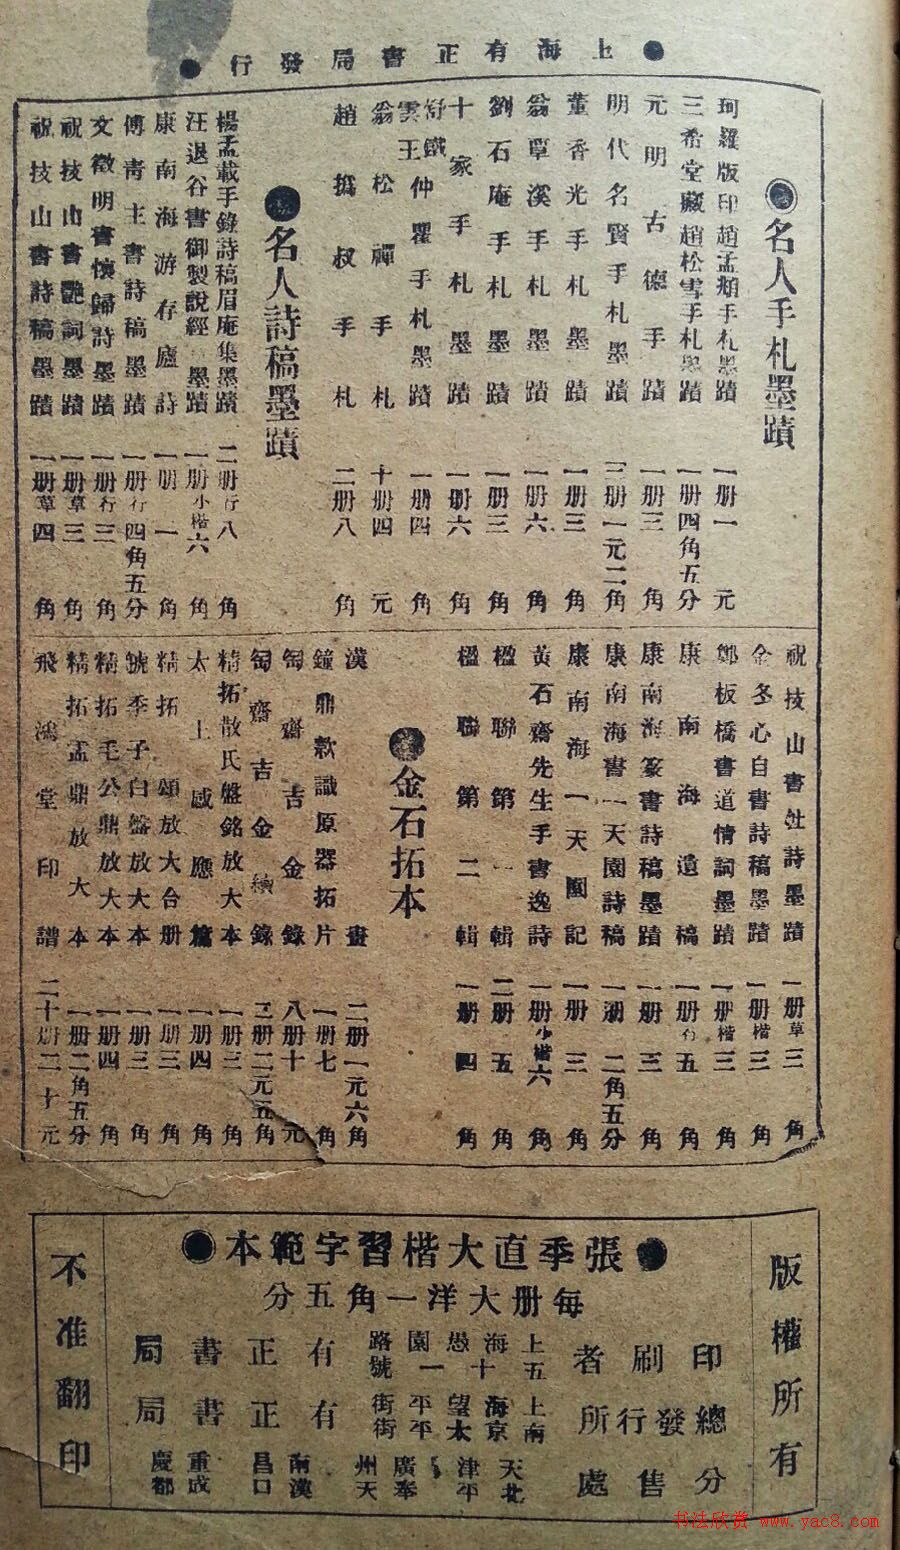 上海有正書局發行
名人手札墨蹟
珂羅版印趙孟頫手札墨蹟 一册一元
三希堂藏趙松雪手札墨蹟 一册四角五分
元明古德手蹟 一册三角
明代名賢手札墨蹟 三册一元二角
董香光手札墨蹟 一册三角
翁覃溪手札墨蹟 一册六角
劉石庵手札墨蹟 一册三角
十家手札墨蹟 一册六角
舒鐵雲王仲瞿手札墨蹟 一册四角
翁松禪手札 十册四元
趙撝叔手札 二册八角
名人詩稿墨蹟
楊孟載手錄詩稿眉庵集墨蹟 二册行八角
汪退谷書御製說經墨蹟 一册小楷六角
康南海游存廬詩 一册一角
傅青主書詩稿墨蹟 一册行四角五分
文徵明書懷歸詩墨蹟 一册行三角
祝技山書艷詞墨蹟 一册草三角
祝技山書詩稿墨蹟 一册草四角
祝技山書詩墨蹟 一册草三角
金冬心自書詩稿墨蹟 一册楷三角
鄭板橋書道情詞墨蹟 一册楷三角
康南海遺稿 一册行五角
康南海篆書詩稿墨蹟 一册三角
康南海書一天園詩稿 一册二角五分
康南海一天園記 一册三角
黃石齋先生手書逸詩 一册小楷六角
楹聯第一輯 二册五角
楹聯第二輯 一册四角
金石拓本
漢畫 二册一元六角
鐘鼎款識原器拓片 一册七角
匋齋吉金錄 八册十元
匋齋吉金續錄 二元五角
精拓散氏盤銘放大本 一册三角
太上感應篇 一册四角
精拓頌放大合册 一册三角
虢季子白盤放大本 一册三角
精拓毛公鼎放大本 一册四角
精拓盂鼎放大本 一册二角五分
飛鴻堂印譜 二十册二十元
版權所有
張季直大楷習字範本
每册大洋一角五分
印刷者 上海愚園路五十一號 有正書局
總發行所 上海望平街 南京太平街 有正書局
分售處 天津 北平 廣州 奉天 南昌 漢口 重慶 成都
不准翻印
书法欣赏 www.yac8.com